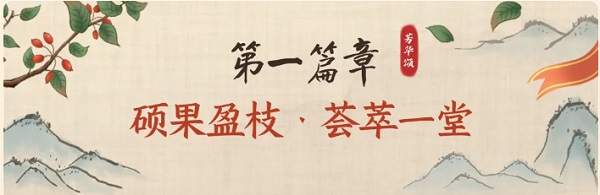 第一篇章
芳华颂
硕果盈枝·荟萃一堂